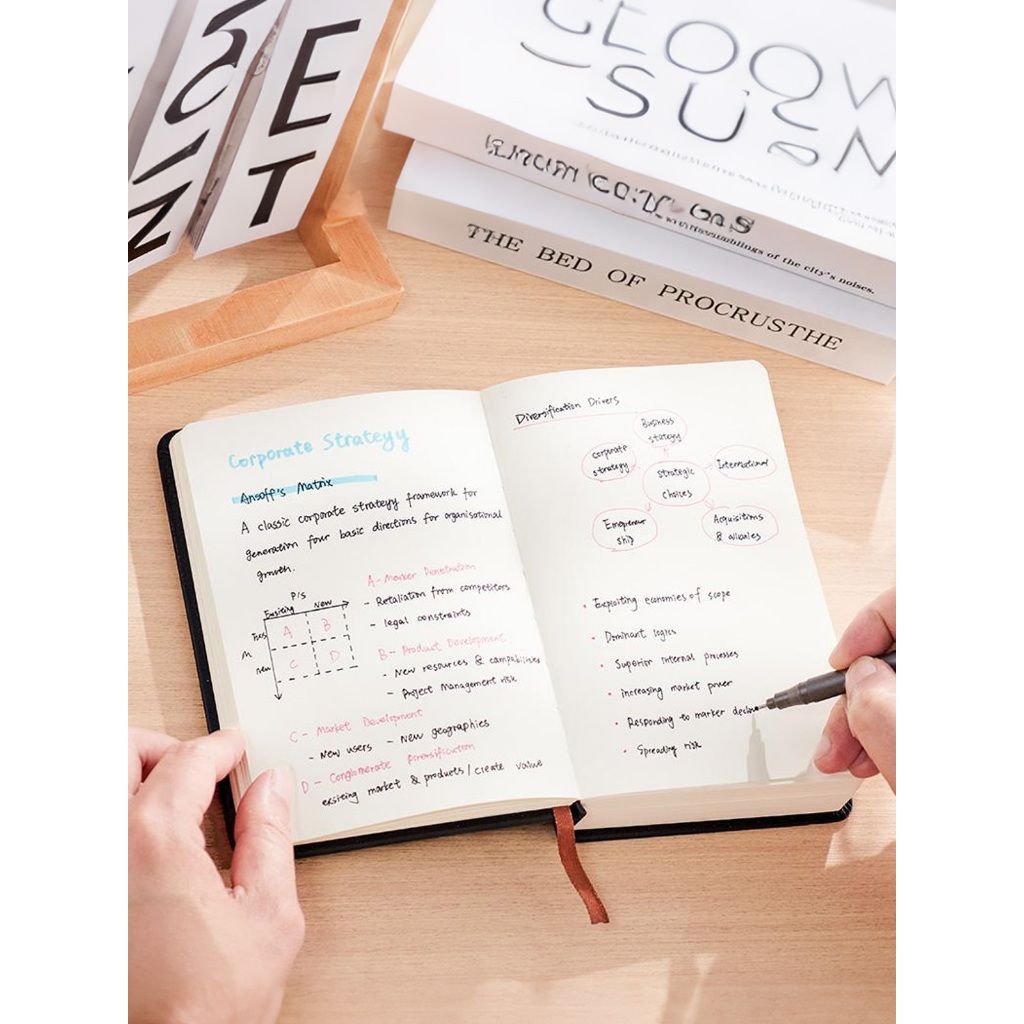 E
T
GLOOW
SU
N
of the city's noises.
THE BED OF PROCRUSTHE
Corporate Strategyy
Ansoff's Matrix
A classic corporate strategyy framework for
generation four basic directions for organisational
growth.
P/S
Exsiting New
M.
New
A B
C D
A- Marker Penetration
- Retaliation from competitors
- legal constraints
B- Product Development
- New resources & campabilities
- Project Management risk
C- Market Development
- New users - New geographies
D- Conglomerate Diversification
exsiting market & products/create value
Diversification Drivers
Business
stategy
corporate
strategy
International
strategic
choices
ship
Acquisitions
&
• Exploiting economies of scope
• Dominant logics
• Superior internal processes
• increasing market power
• Responding to marker decline
• Spreading risk